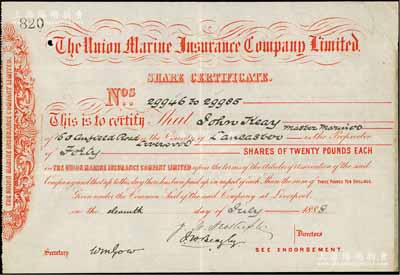 820
The Union Marine Insurance Company Limited.
SHARE CERTIFICATE.
Nos. 29946 to 29985
This is to certify that John Keay Master Mariner
of 53 Anfield Road Liverpool in the County of Lancaster is the Proprietor
of Forty SHARES OF TWENTY POUNDS EACH
IN THE UNION MARINE INSURANCE COMPANY LIMITED upon the terms of the Articles of Association of the said
Company and that up to this day there has been paid up in respect of each Share the sum of THREE POUNDS TEN SHILLINGS.
Given under the Common Seal of the said Company at Liverpool,
on the eleventh day of July 1888
Directors
Secretary
SEE ENDORSEMENT.
THE UNION MARINE INSURANCE COMPANY LIMITED.